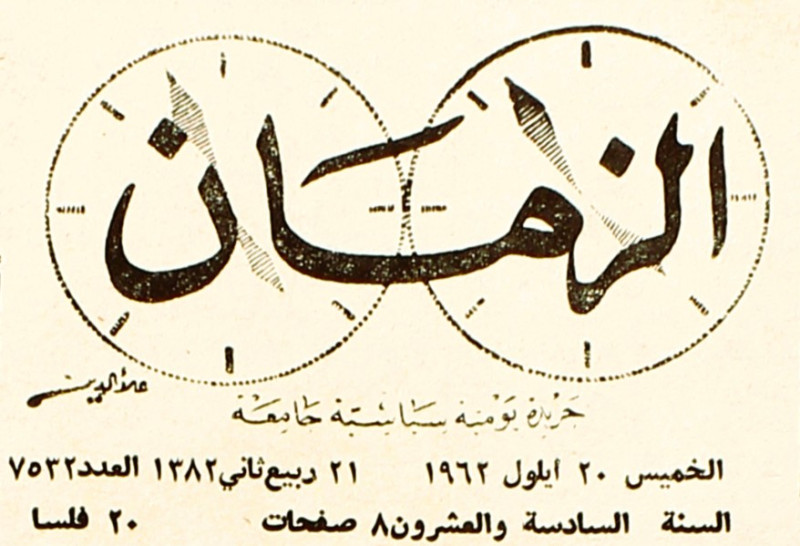 الزمان
علاء الدين
جريدة يومية سياسية جامعة
الخميس ٢٠ ايلول ١٩٦٢ ٢١ ربيع ثاني ١٣٨٢ العدد ٧٥٣٢
السنة السادسة والعشرون ٨ صفحات ٢٠ فلسا